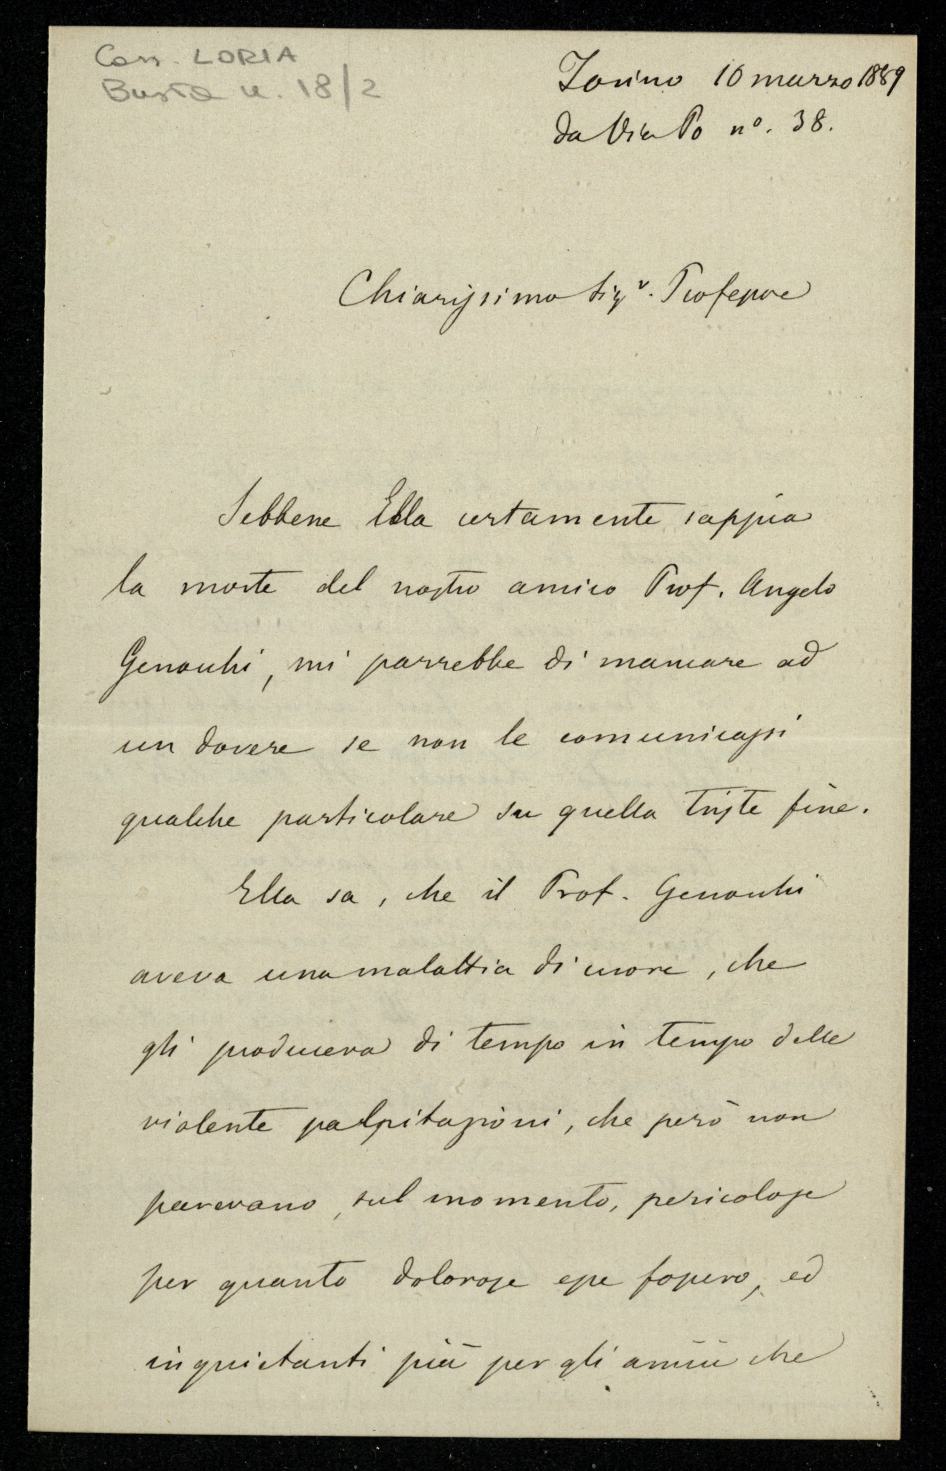 Corr. LORIA
Busta n. 18/2
Torino 10 marzo 1889
da Via Po nº. 38.
Chiarissimo Sigr. Professore
Sebbene Ella certamente sappia
la morte del nostro amico Prof. Angelo
Genocchi, mi parrebbe di mancare ad
un dovere se non le comunicassi
qualche particolare su quella triste fine.
Ella sa, che il Prof. Genocchi
aveva una malattia di cuore, che
gli produceva di tempo in tempo delle
violente palpitazioni, che però non
parevano, sul momento, pericolose
per quanto dolorose esse fossero, ed
inquietanti più per gli amici che